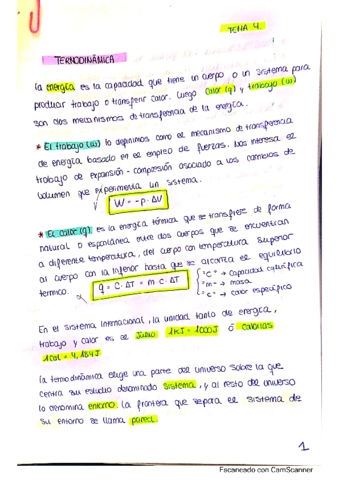 TEMA 4.
TERMODINÁMICA
La energía es la capacidad que tiene un cuerpo o un sistema para
producir trabajo o transferir calor. Luego calor (q) y trabajo (w)
son dos mecanismos de transferencia de la energía.
* El trabajo (w) lo definimos como el mecanismo de transferencia
de energía basado en el empleo de fuerzas. Nos interesa el
trabajo de expansión - compresión asociado a los cambios de
volumen que experimenta un sistema.
W = -p·ΔV
* El calor (q): es la energía térmica que se transfiere de forma
natural o espontánea entre dos cuerpos que se encuentran
a diferente temperatura, del cuerpo con temperatura superior
al cuerpo con la inferior hasta que se alcanza el equilibrio
térmico.
q = C·ΔT = m·c·ΔT
"C" → capacidad calorífica
"m" → masa
"c" → calor específico
En el Sistema Internacional, la unidad tanto de energía,
trabajo y calor es el Julio 1KJ = 1000J ó calorías
1cal = 4,184J
La termodinámica elige una parte del universo sobre la que
centra su estudio denominado sistema, y al resto del universo
lo denomina entorno. La frontera que separa el sistema de
su entorno se llama pared.
1
Escaneado con CamScanner